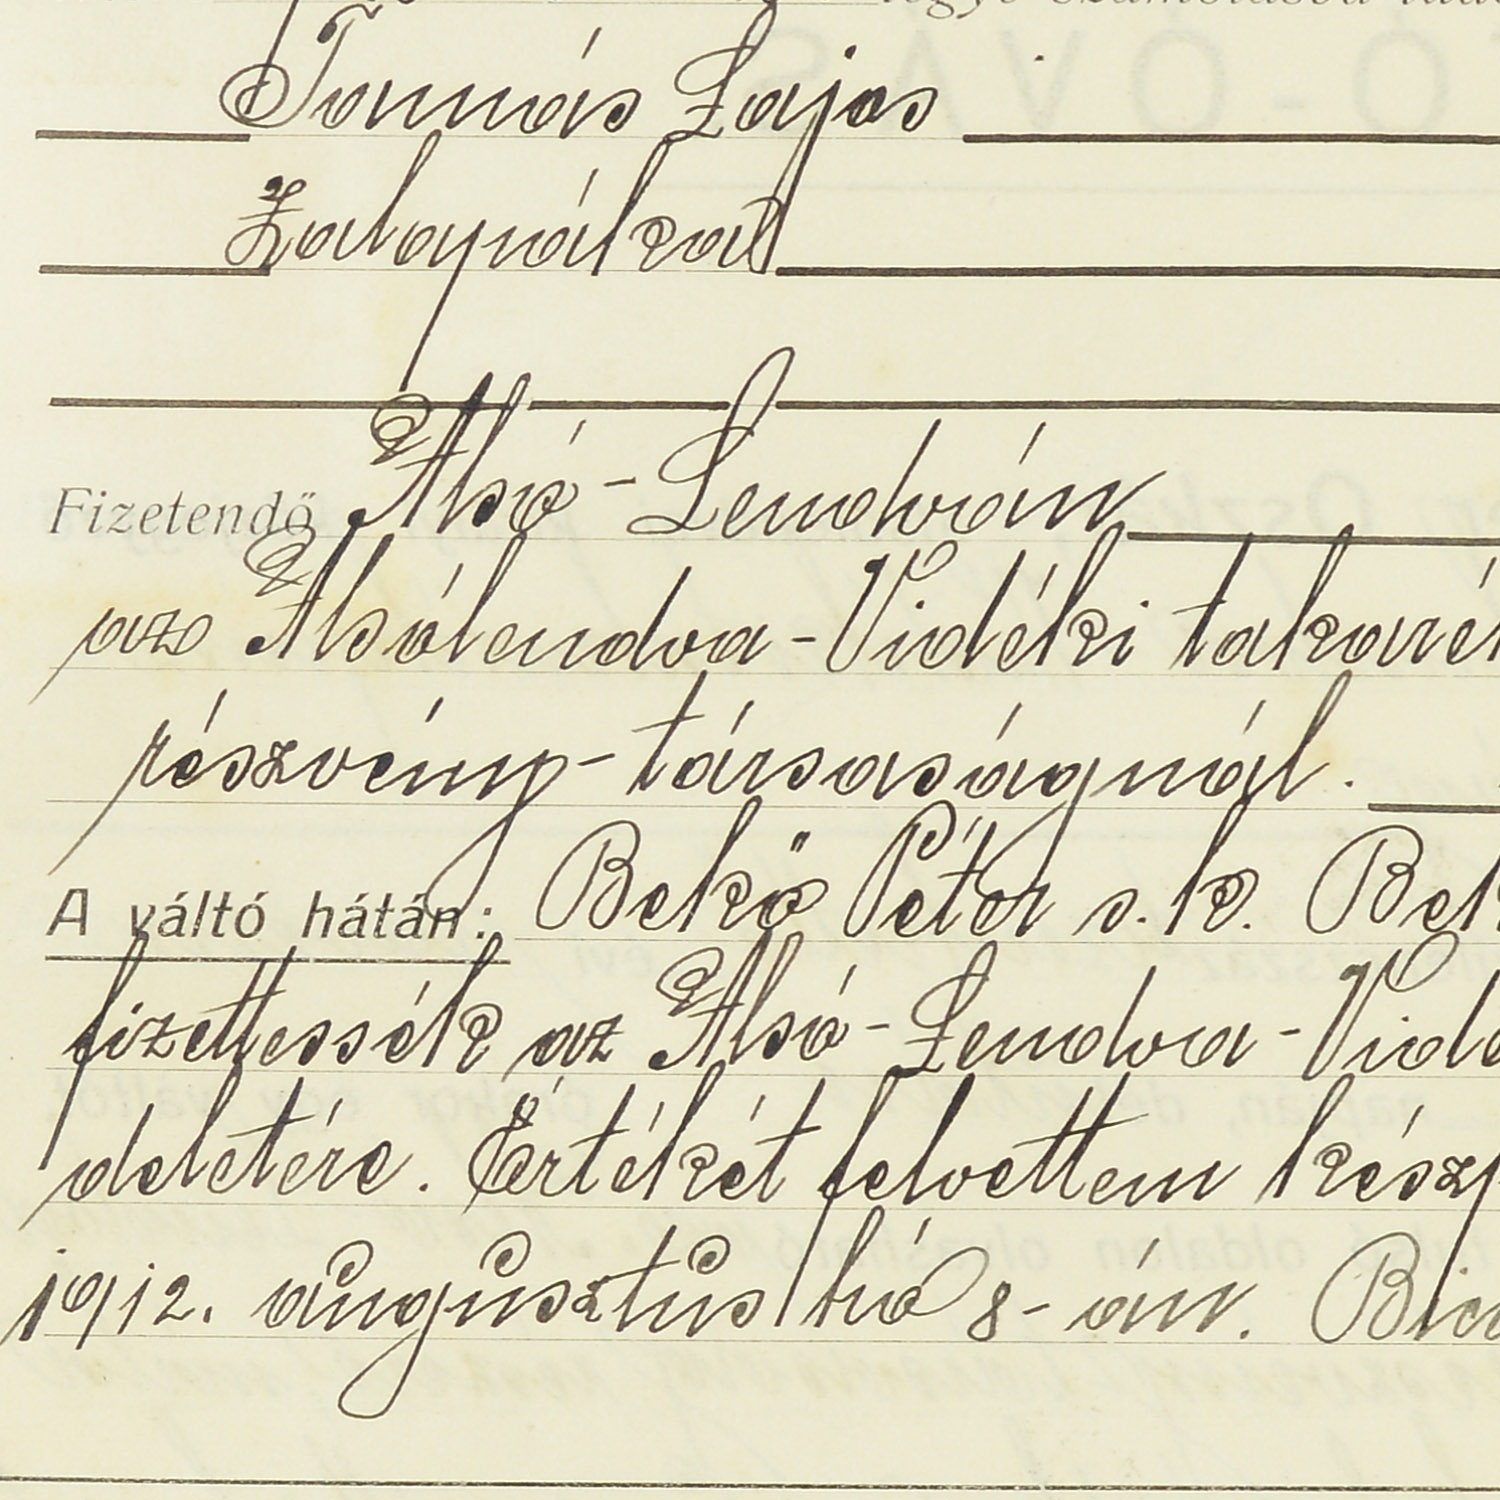 Tamás Lajos
Zalapálfa
Fizetendő Alsó-Lendván
az Alsólendva-Vidéki takaré
részvény-társaságnál.
A váltó hátán: Bekő Péter s. k. Bek
fizettessék az Alsó-Lendva-Vidé
deletére. Értékét felvettem kész
1912. augusztus hó 8-án.